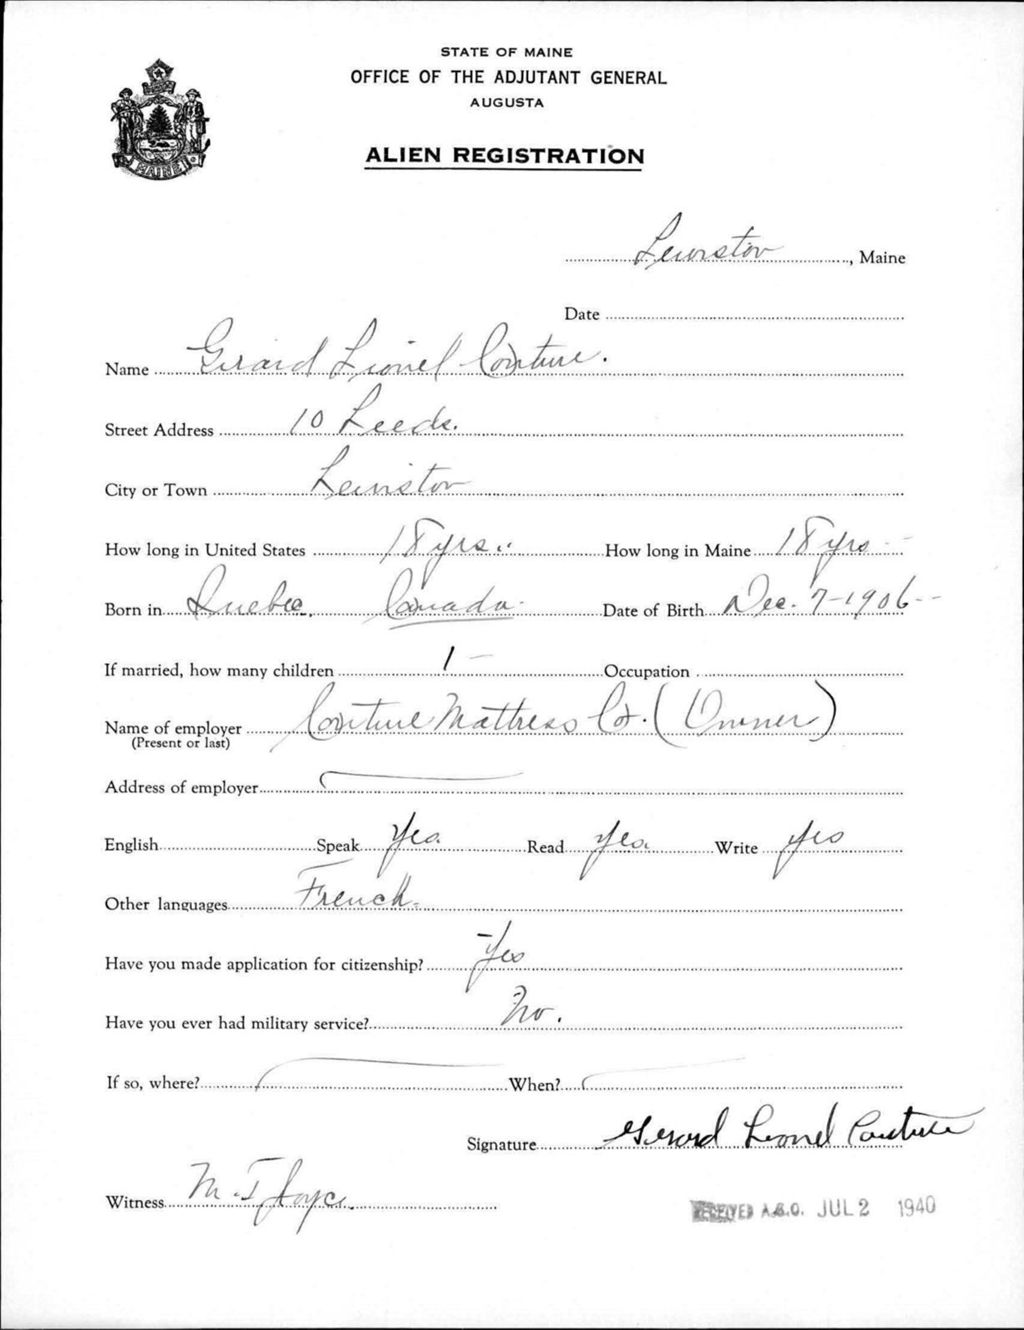 STATE OF MAINE
OFFICE OF THE ADJUTANT GENERAL
AUGUSTA
ALIEN REGISTRATION
MAINE
Lewiston, Maine
Date
Name Gerard Lionel Couture.
Street Address 10 Leeds.
City or Town Lewiston
How long in United States 18 yrs.. How long in Maine 18 yrs
Born in Quebec, Canada. Date of Birth Dec. 7-1906
If married, how many children 1 Occupation
Name of employer Couture Mattress Co. (Owner)
(Present or last)
Address of employer
English Speak Yes. Read Yes. Write Yes
Other languages French
Have you made application for citizenship? Yes
Have you ever had military service? No.
If so, where? When?
Signature Gerard Lionel Couture
Witness M. T. Joyce.
RECEIVED A.G.O. JUL 2 1940